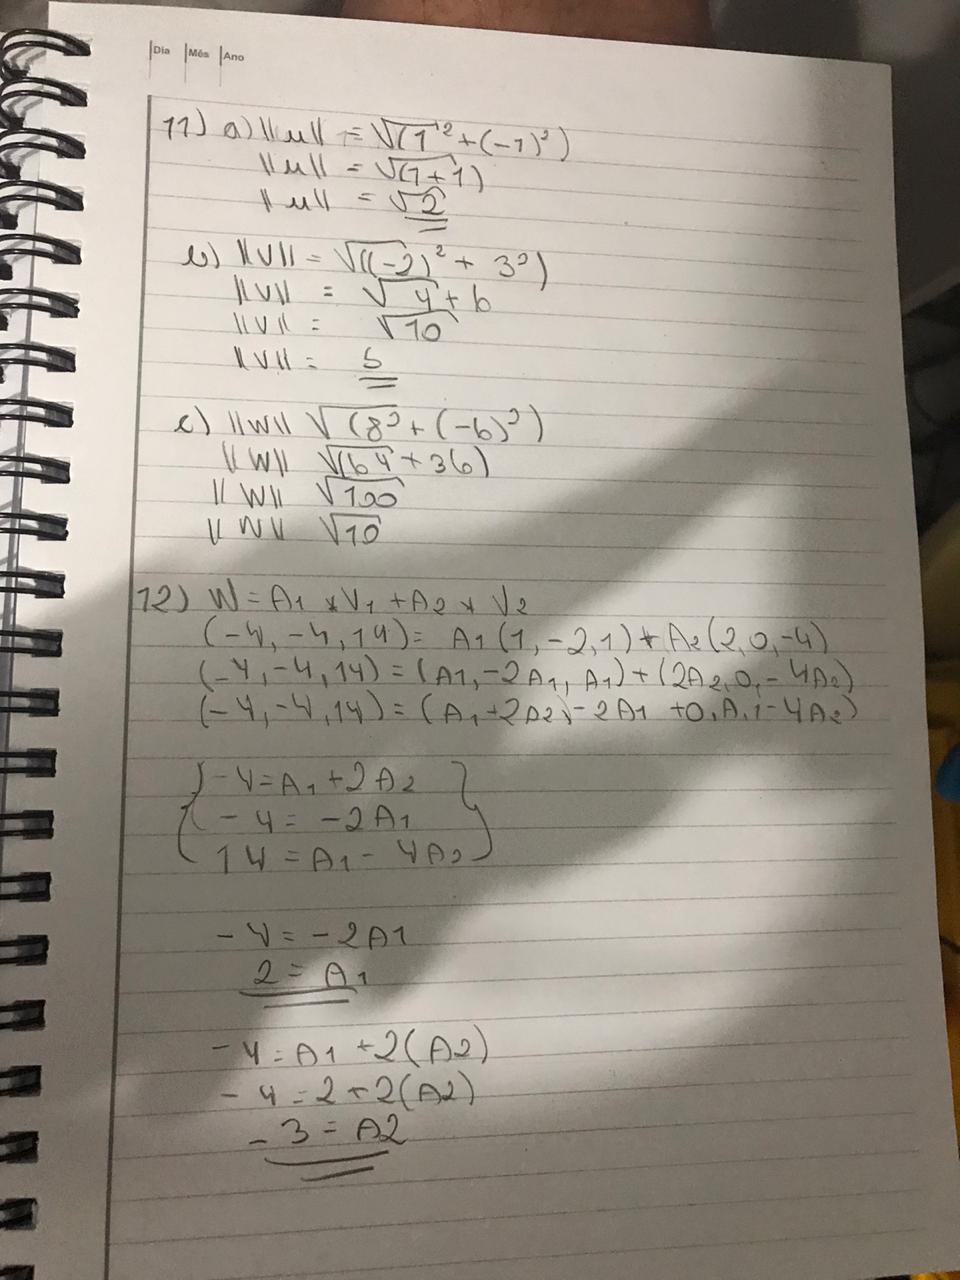 Dia Mês Ano
11) a) ||u|| = √(1² + (-1)²)
||u|| = √(1+1)
||u|| = √2
b) ||V|| = √((-2)² + 3²)
||V|| = √4+6
||V|| = √10
||V|| = 5
c) ||W|| √(8² + (-6)²)
||W|| √(64 + 36)
||W|| √100
||W|| √10
12) W = A1 * V1 + A2 * V2
(-4, -4, 14) = A1(1, -2, 1) + A2(2, 0, -4)
(-4, -4, 14) = (A1, -2A1, A1) + (2A2, 0, -4A2)
(-4, -4, 14) = (A1 + 2A2, -2A1 + 0, A1 - 4A2)
-4 = A1 + 2A2
-4 = -2A1
14 = A1 - 4A2
-4 = -2A1
2 = A1
-4 = A1 + 2(A2)
-4 = 2 + 2(A2)
-3 = A2